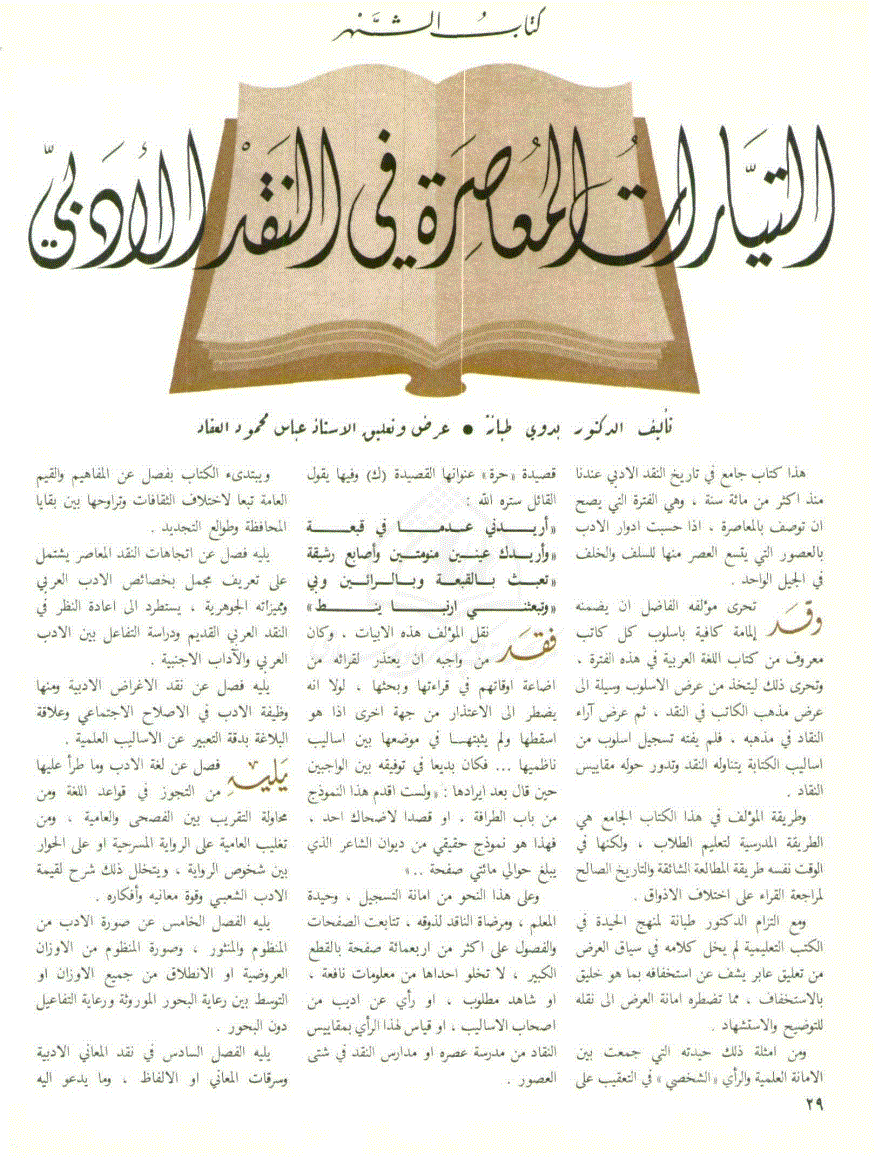 كتاب الشهر
التيارات المعاصرة في النقد الأدبي
تأليف الدكتور بدوي طبانة ● عرض وتعليق الاستاذ عباس محمود العقاد
هذا كتاب جامع في تاريخ النقد الادبي عندنا
منذ اكثر من مائة سنة ، وهي الفترة التي يصح
ان توصف بالمعاصرة ، اذا حسبت ادوار الادب
بالعصور التي يتسع العصر منها للسلف والخلف
في الجيل الواحد .
وقد تحرى مؤلفه الفاضل ان يضمنه
إلمامة كافية باسلوب كل كاتب
معروف من كتاب اللغة العربية في هذه الفترة ،
وتحرى ذلك ليتخذ من عرض الاسلوب وسيلة الى
عرض مذهب الكاتب في النقد ، ثم عرض آراء
النقاد في مذهبه . فلم يفته تسجيل اسلوب من
اساليب الكتابة يتناوله النقد وتدور حوله مقاييس
النقاد .
وطريقة المؤلف في هذا الكتاب الجامع هي
الطريقة المدرسية لتعليم الطلاب ، ولكنها في
الوقت نفسه طريقة المطالعة الشائقة والتاريخ الصالح
لمراجعة القراء على اختلاف الاذواق .
ومع التزام الدكتور طبانة لمنهج الحيدة في
الكتب التعليمية لم يخل كلامه في سياق العرض
من تعليق عابر يشف عن استخفافه بما هو خليق
بالاستخفاف ، مما تضطره امانة العرض الى نقله
للتوضيح والاستشهاد .
ومن امثلة ذلك حيدته التي جمعت بين
الامانة العلمية والرأي «الشخصي» في التعقيب على
قصيدة «حرة» عنوانها القصيدة (ك) وفيها يقول
القائل ستره الله :
«أريدني عدما في قبعة
«وأريدك عينين منومتين وأصابع رشيقة
«تعبث بالقبعة وبالرائين وبي
«وتبعثني ارنبا ينط»
فقد نقل المؤلف هذه الابيات . وكان
من واجبه ان يعتذر لقرائه من
اضاعة اوقاتهم في قراءتها وبحثها ، لولا انه
يضطر الى الاعتذار من جهة اخرى اذا هو
اسقطها ولم يثبتها في موضعها بين اساليب
ناظميها ... فكان بديعا في توفيقه بين الواجبين
حين قال بعد ايرادها : «ولست اقدم هذا النموذج
من باب الطرافة ، او قصدا لاضحاك احد ،
فهذا هو نموذج حقيقي من ديوان الشاعر الذي
يبلغ حوالي مائتي صفحة ..»
وعلى هذا النحو من امانة التسجيل ، وحيدة
المعلم ، ومرضاة الناقد لذوقه ، تتابعت الصفحات
والفصول على اكثر من اربعمائة صفحة بالقطع
الكبير ، لا تخلو احداها من معلومات نافعة ،
او شاهد مطلوب ، او رأي عن اديب من
اصحاب الاساليب ، او قياس لهذا الرأي بمقاييس
النقاد من مدرسة عصره او مدارس النقد في شتى
العصور .
ويبتدىء الكتاب بفصل عن المفاهيم والقيم
العامة تبعا لاختلاف الثقافات وتراوحها بين بقايا
المحافظة وطوالع التجديد .
يليه فصل عن اتجاهات النقد المعاصر يشتمل
على تعريف مجمل بخصائص الادب العربي
ومميزاته الجوهرية ، يستطرد الى اعادة النظر في
النقد العربي القديم ودراسة التفاعل بين الادب
العربي والآداب الاجنبية .
يليه فصل عن نقد الاغراض الادبية ومنها
وظيفة الادب في الاصلاح الاجتماعي وعلاقة
البلاغة بدقة التعبير عن الاساليب العلمية .
يليه فصل عن لغة الادب وما طرأ عليها
من التجوز في قواعد اللغة ومن
محاولة التقريب بين الفصحى والعامية ، ومن
تغليب العامية على الرواية المسرحية او على الحوار
بين شخوص الرواية ، ويتخلل ذلك شرح لقيمة
الادب الشعبي وقوة معانيه وأفكاره .
يليه الفصل الخامس عن صورة الادب من
المنظوم والمنثور ، وصورة المنظوم من الاوزان
العروضية او الانطلاق من جميع الاوزان او
التوسط بين رعاية البحور الموروثة ورعاية التفاعيل
دون البحور .
يليه الفصل السادس في نقد المعاني الادبية
وسرقات المعاني او الالفاظ ، وما يدعو اليه
٢٩